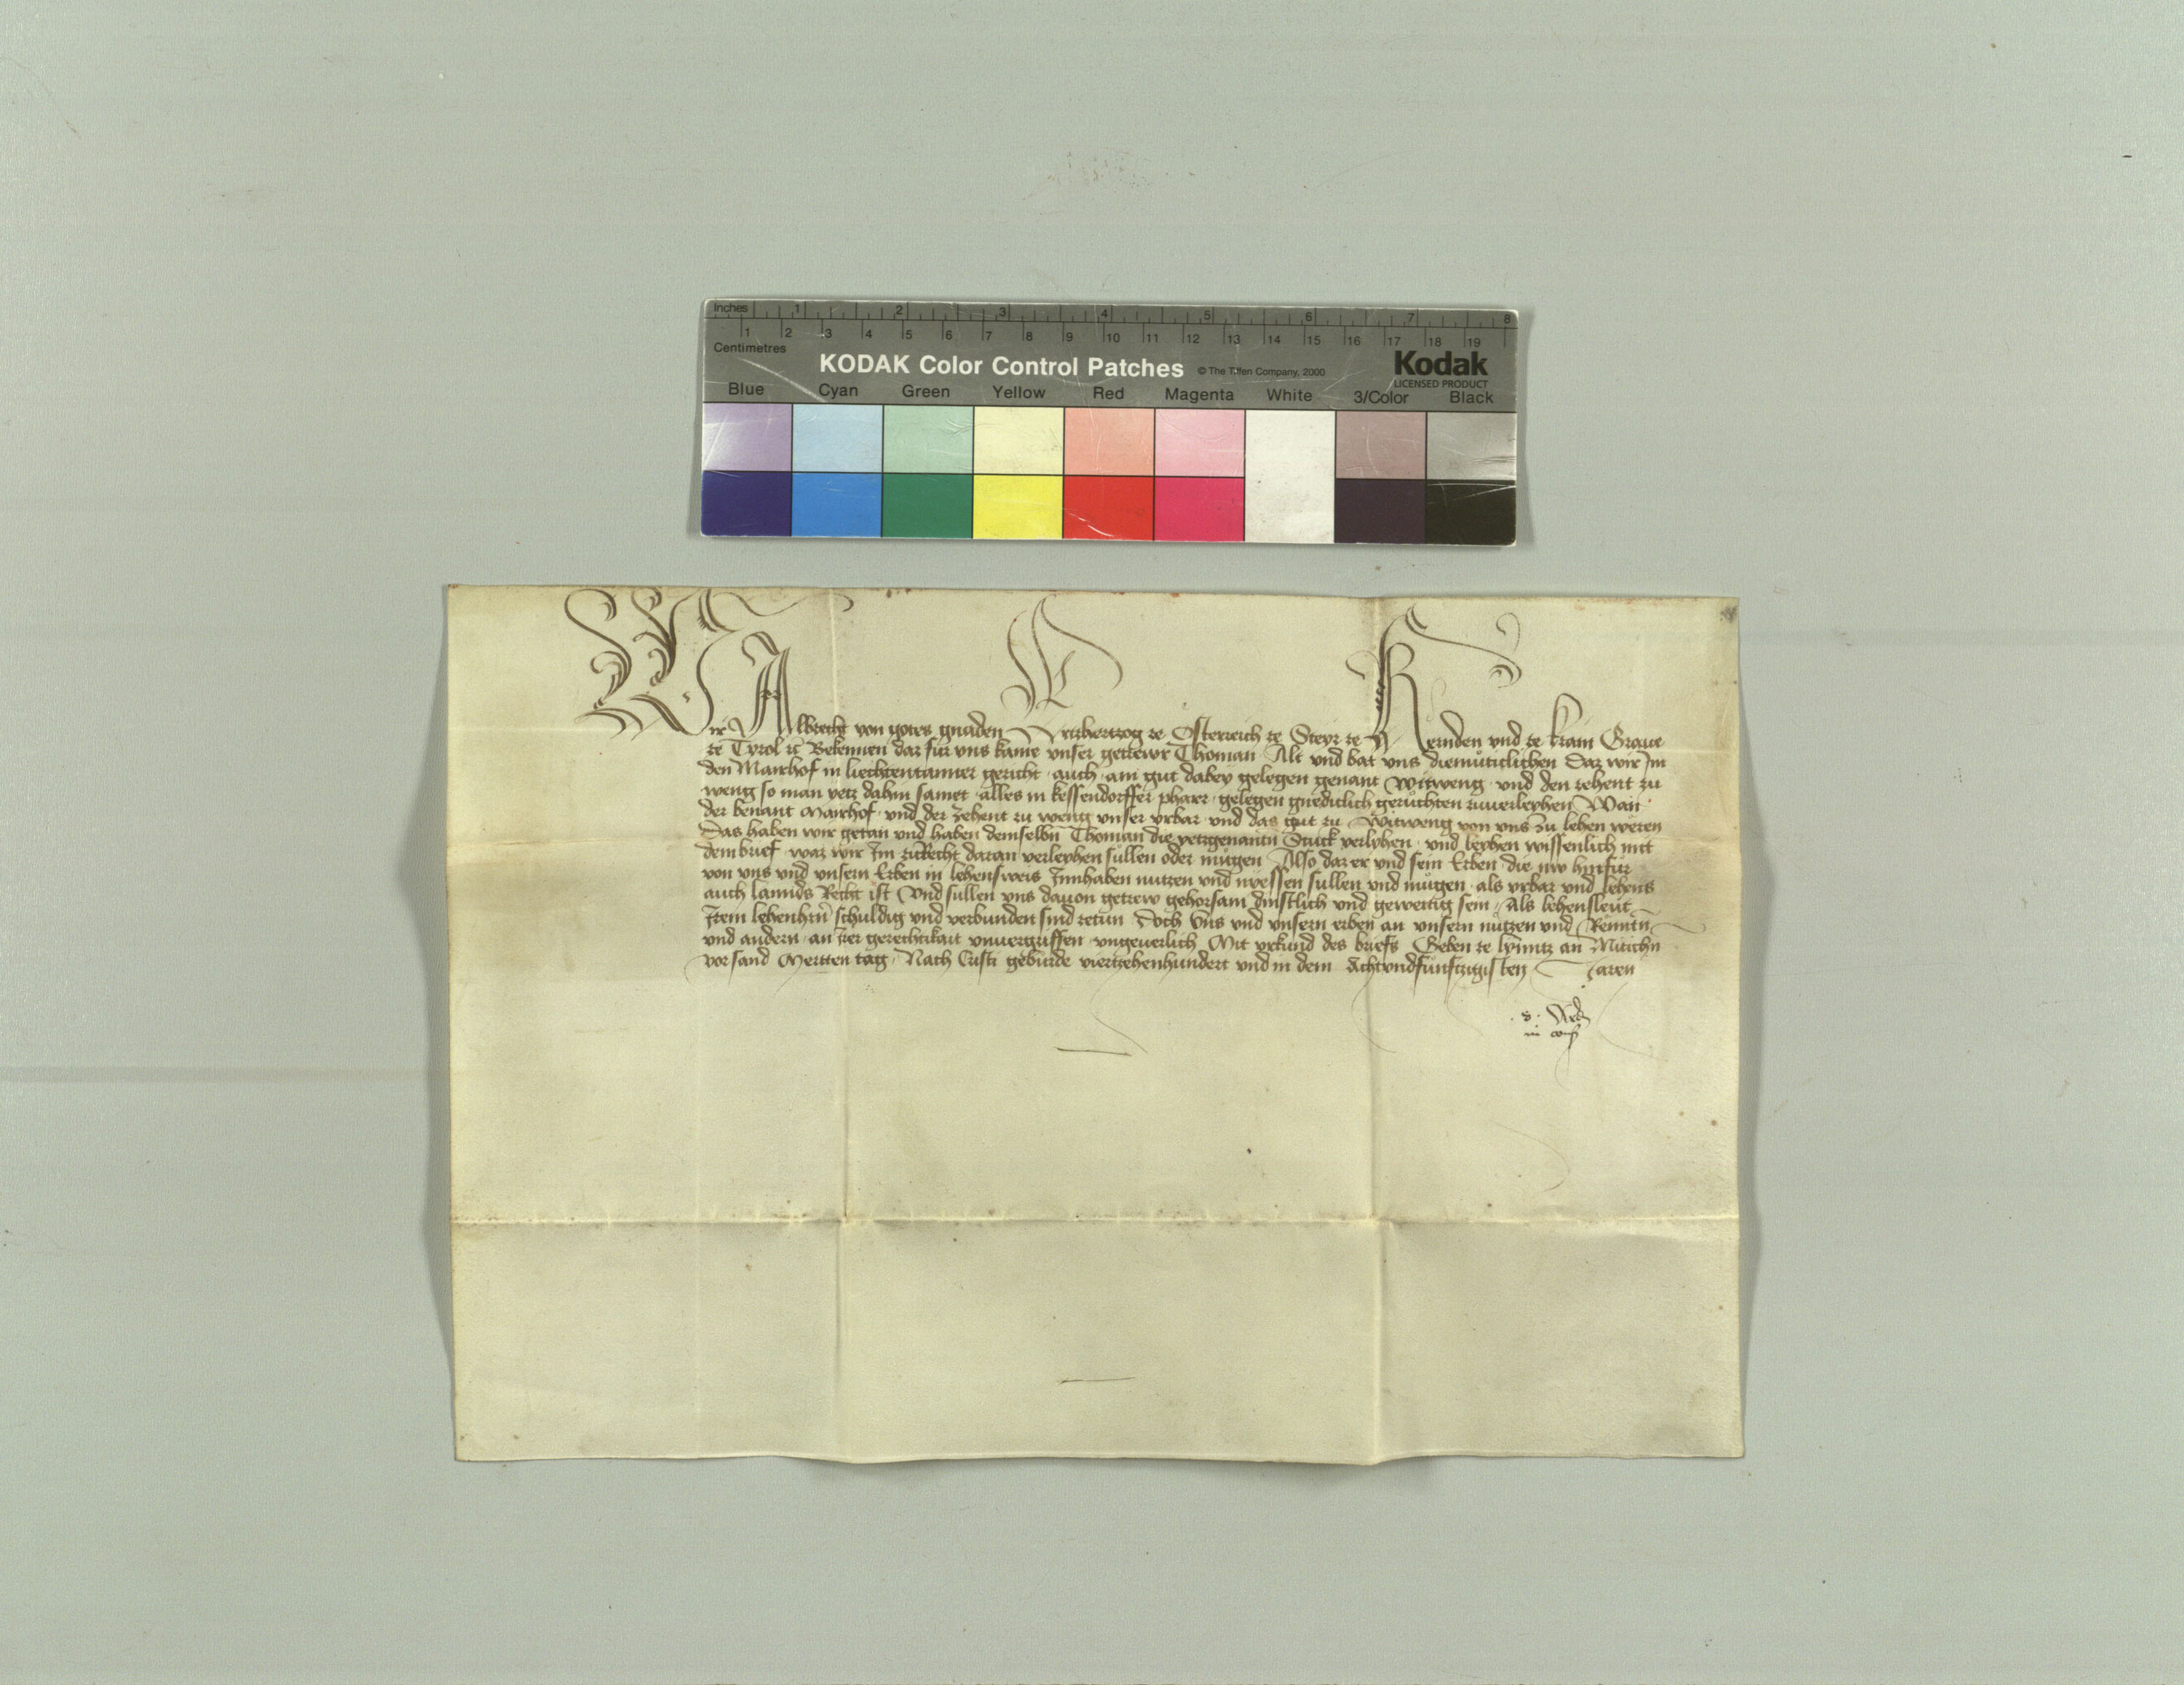 Inches 1 2 3 4 5 6 7 8
1 2 3 4 5 6 7 8 9 10 11 12 13 14 15 16 17 18 19
Centimetres
KODAK Color Control Patches © The Tiffen Company, 2000 Kodak
LICENSED PRODUCT
Blue Cyan Green Yellow Red Magenta White 3/Color Black
Wir Albrecht von gotes gnaden Ertzhertzog ze Osterreich ze Steyr ze Kernden und ze krain Graue
ze Tyrol etc Bekennen daz für uns kame unser getrewr Thoman Alt und bat uns diemuticlichen Daz wir Im
den Mairhof in liechtentanner gericht auch am gut dabey gelegen genant Witweng und den zehent zu
weng so man yetz dahin samet alles in kessendorffer pharr gelegen gnediclich geruchten zuuerleyhen Wan
der benant Mairhof und der zehent zu weng unser urbar und das gut zu Witweng von uns zu lehen weren
Das haben wir getan und haben demselbn Thoman die yetzgenantn Stuck verlyhen und leyhen wissenlich mit
dem brief waz wir Im zuRecht daran verleyhen sullen oder mugen Also daz er und sein Erben die nw hinfür
von uns und unsern Erben in lehensweis Innhaben nutzen und niessen sullen und mugen als urbar und lehens
auch lannds Recht ist Und sullen uns dauon getrew gehorsam dinstlich und gewertig sein Als lehensleut
Irem lehenhrn schuldig und verbunden sind zetun Doch Uns und unsern erben an unsern nutzen und Renntn
und andern an Irer gerechtikait unuergriffen ungeuerlich Mit urkund des briefs Geben ze lynntz an Mitichn
vor sand Mertten tag Nach Cristi geburde viertzehenhundert und in dem Achtundfunftzigisten Jaren
in cons